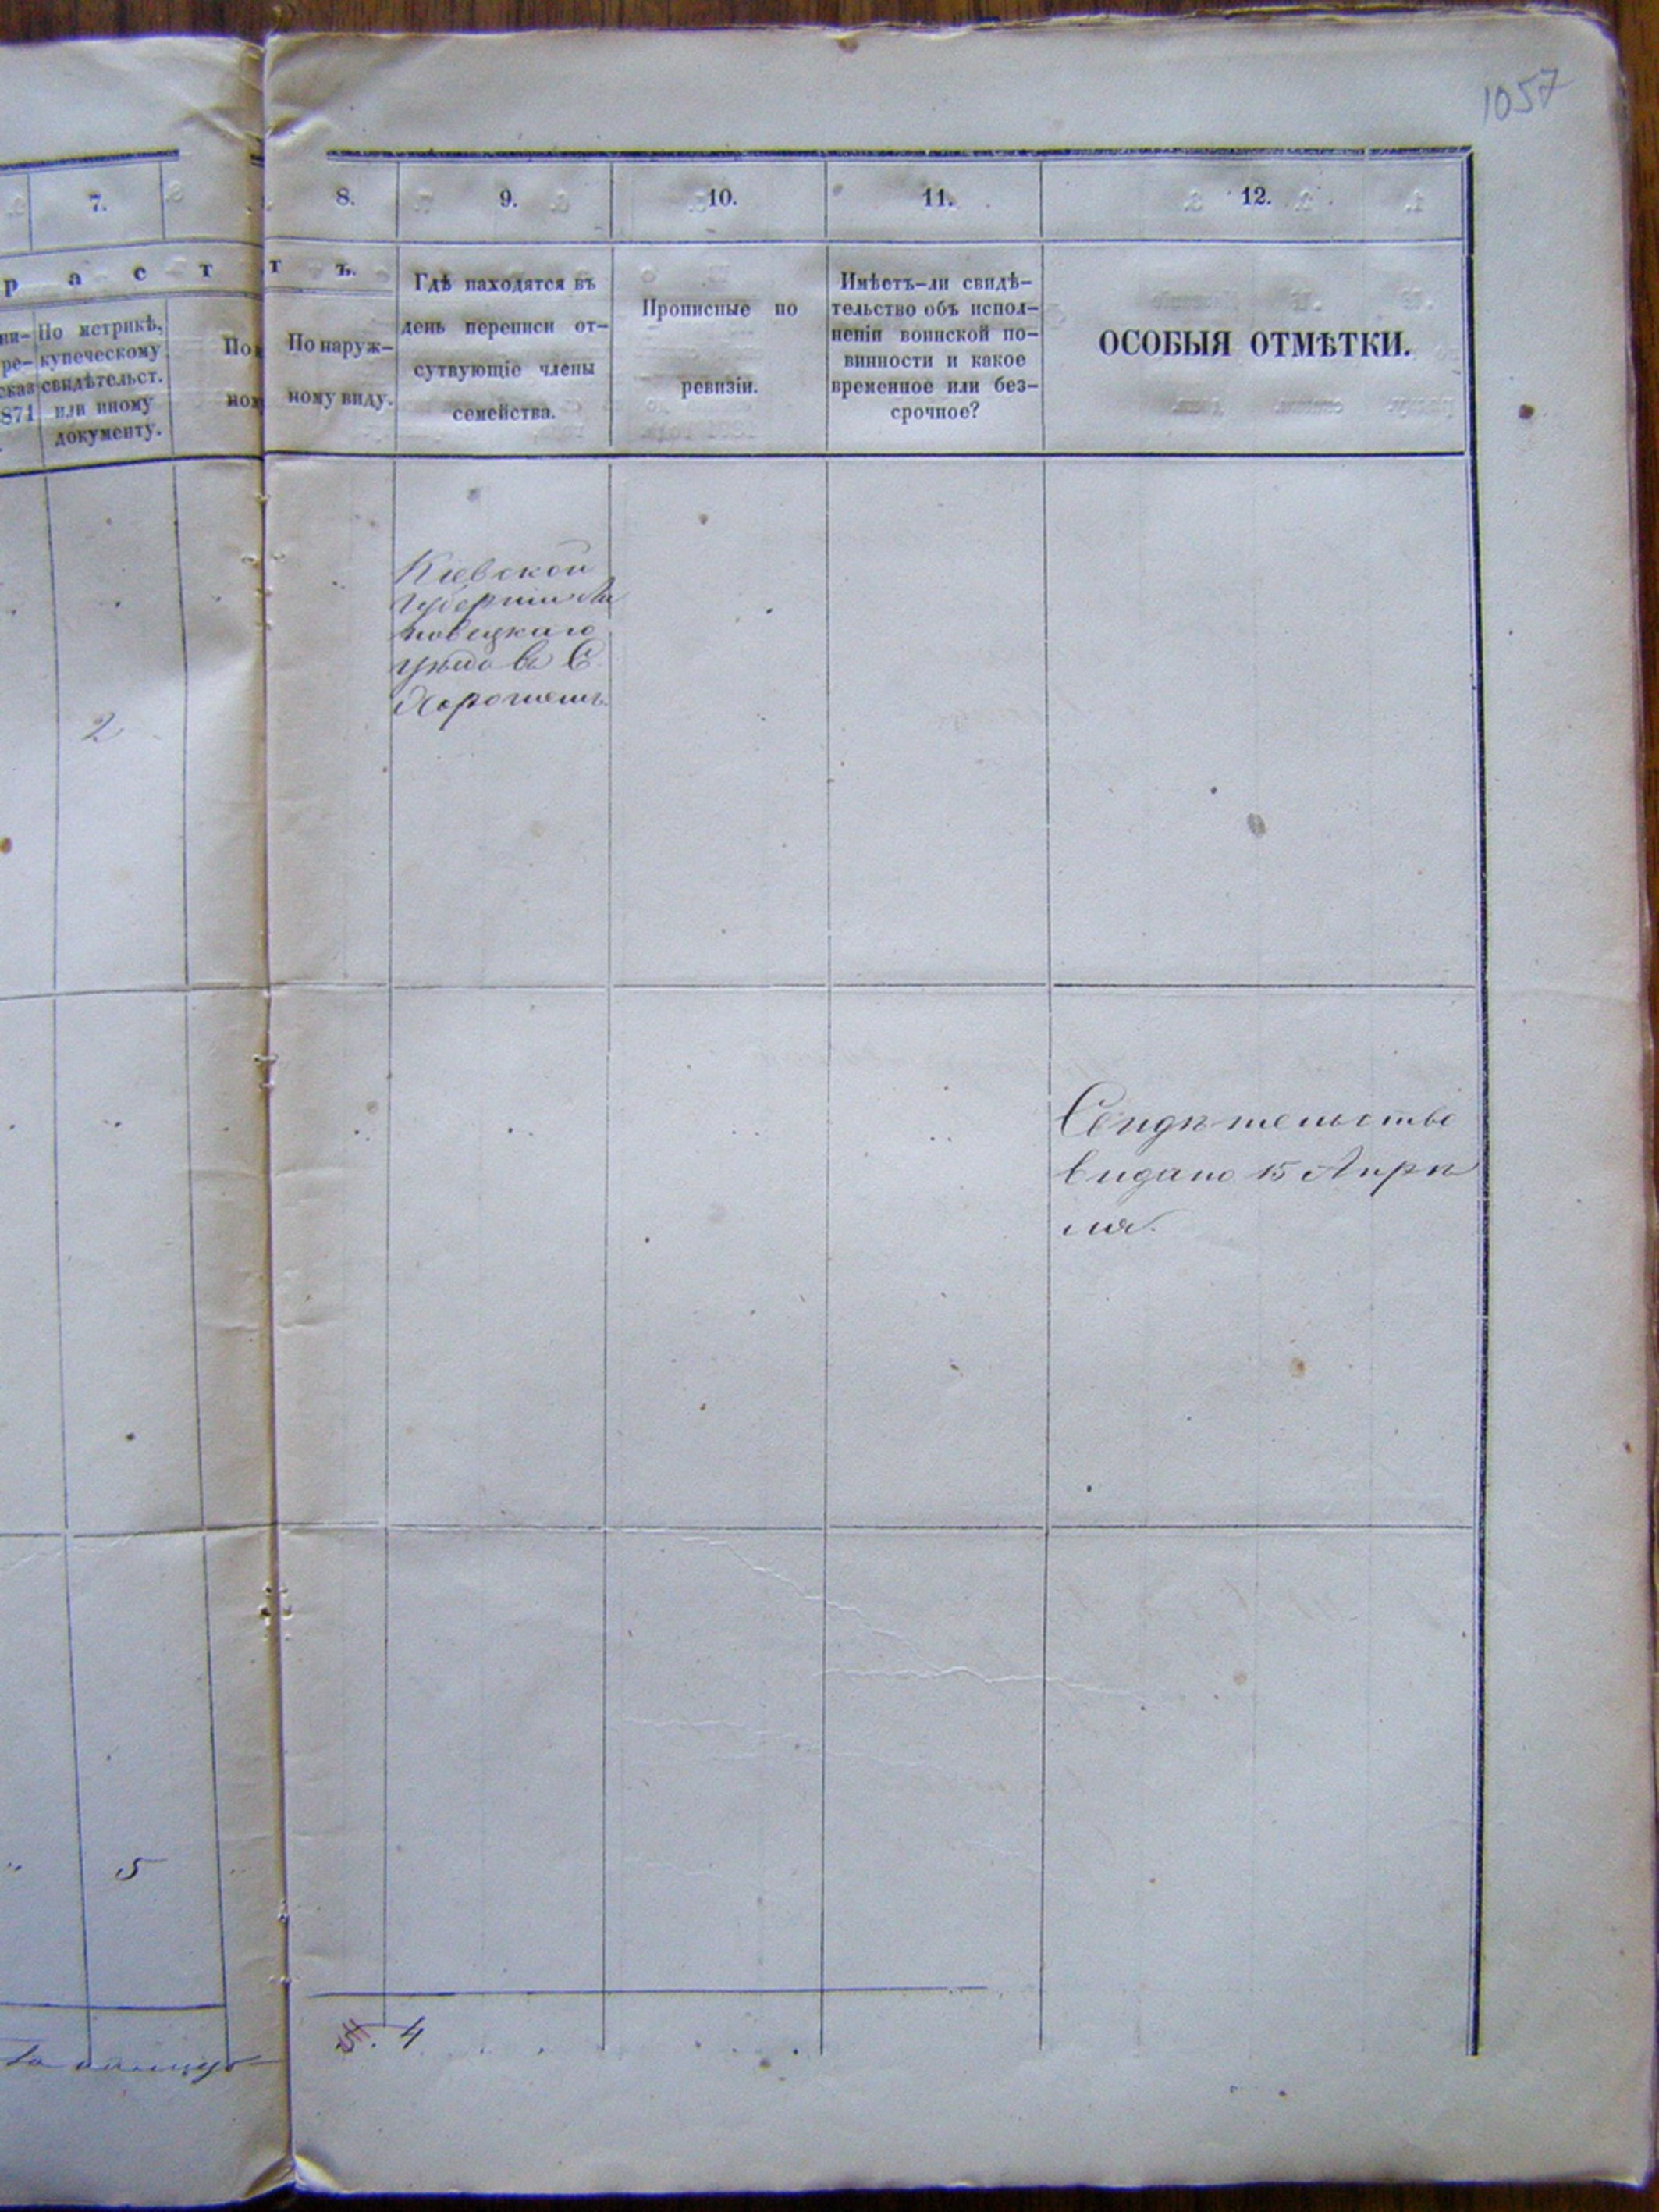 1057
7.
8.
9.
10.
11.
12.
р а с т
т ъ.
По метрикѣ,
купеческому
свидѣтельст.
или иному
документу.
ни-
ре-
сказ
1871
По
ном
По наруж-
ному виду.
Гдѣ находятся въ
день переписи от-
сутвующіе члены
семейства.
Прописные по
ревизіи.
Имѣетъ-ли свидѣ-
тельство объ испол-
неніи воинской по-
винности и какое
временное или без-
срочное?
ОСОБЫЯ ОТМѢТКИ.
Кіевской
Губерніи Ли
повецкаго
уѣзда въ С.
Хорошемъ
2
Свидѣтельство
видано 15 Апрѣ
ля.
5
5. 4